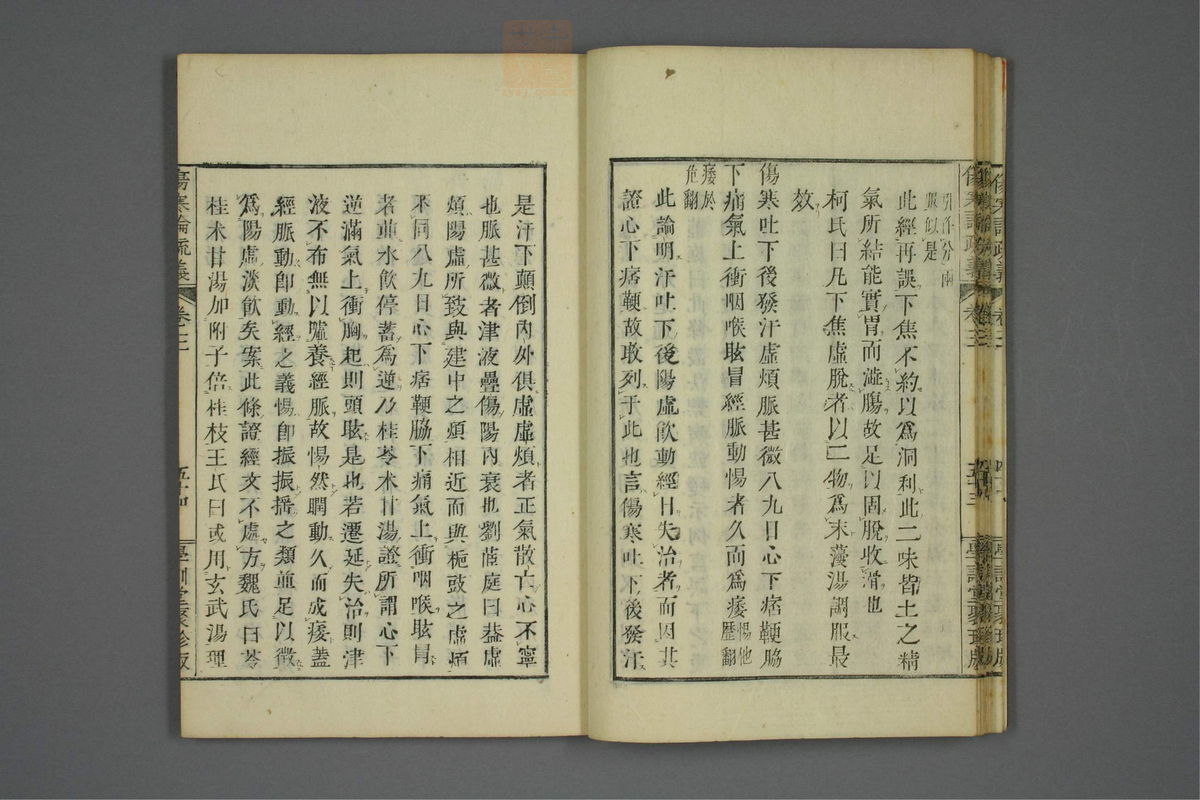 別作分兩
服似是
此經再誤下焦不約以爲洞利此二味皆土之精
氣所結能實胃而澁膓故足以固脫收滑也
柯氏曰凡下焦虛脫者以二物爲末蔆湯調服最
效
傷寒吐下後發汗虛煩脈甚微八九日心下痞鞕脇
下痛氣上衝咽喉眩冒經脈動惕者久而爲痿惕他歷翻
痿於危翻
此論明汗吐下後陽虛飮動經日失治者而因其
證心下痞鞕故敢列于此也言傷寒吐下後發汗
是汗下顛倒內外俱虛虛煩者正氣散亡心不寧
也脈甚微者津液疊傷陽內衰也劉茝庭曰葢虛
煩陽虛所致與建中之煩相近而與梔豉之虛煩
不同八九日心下痞鞕脇下痛氣上衝咽喉眩冐
者並水飮停蓄爲逆乃桂苓朮甘湯證所謂心下
逆滿氣上衝胸起則頭眩是也若遷延失治則津
液不布無以噓養經脈故惕然瞤動久而成痿葢
經脈動卽動經之義惕卽振振搖之類並足以徵
爲陽虛淡飮矣案此條證經文不處方魏氏曰苓
桂朮甘湯加附子倍桂枝王氏曰或用玄武湯理
傷寒論疏義
卷三
五十四
學訓堂聚珍版